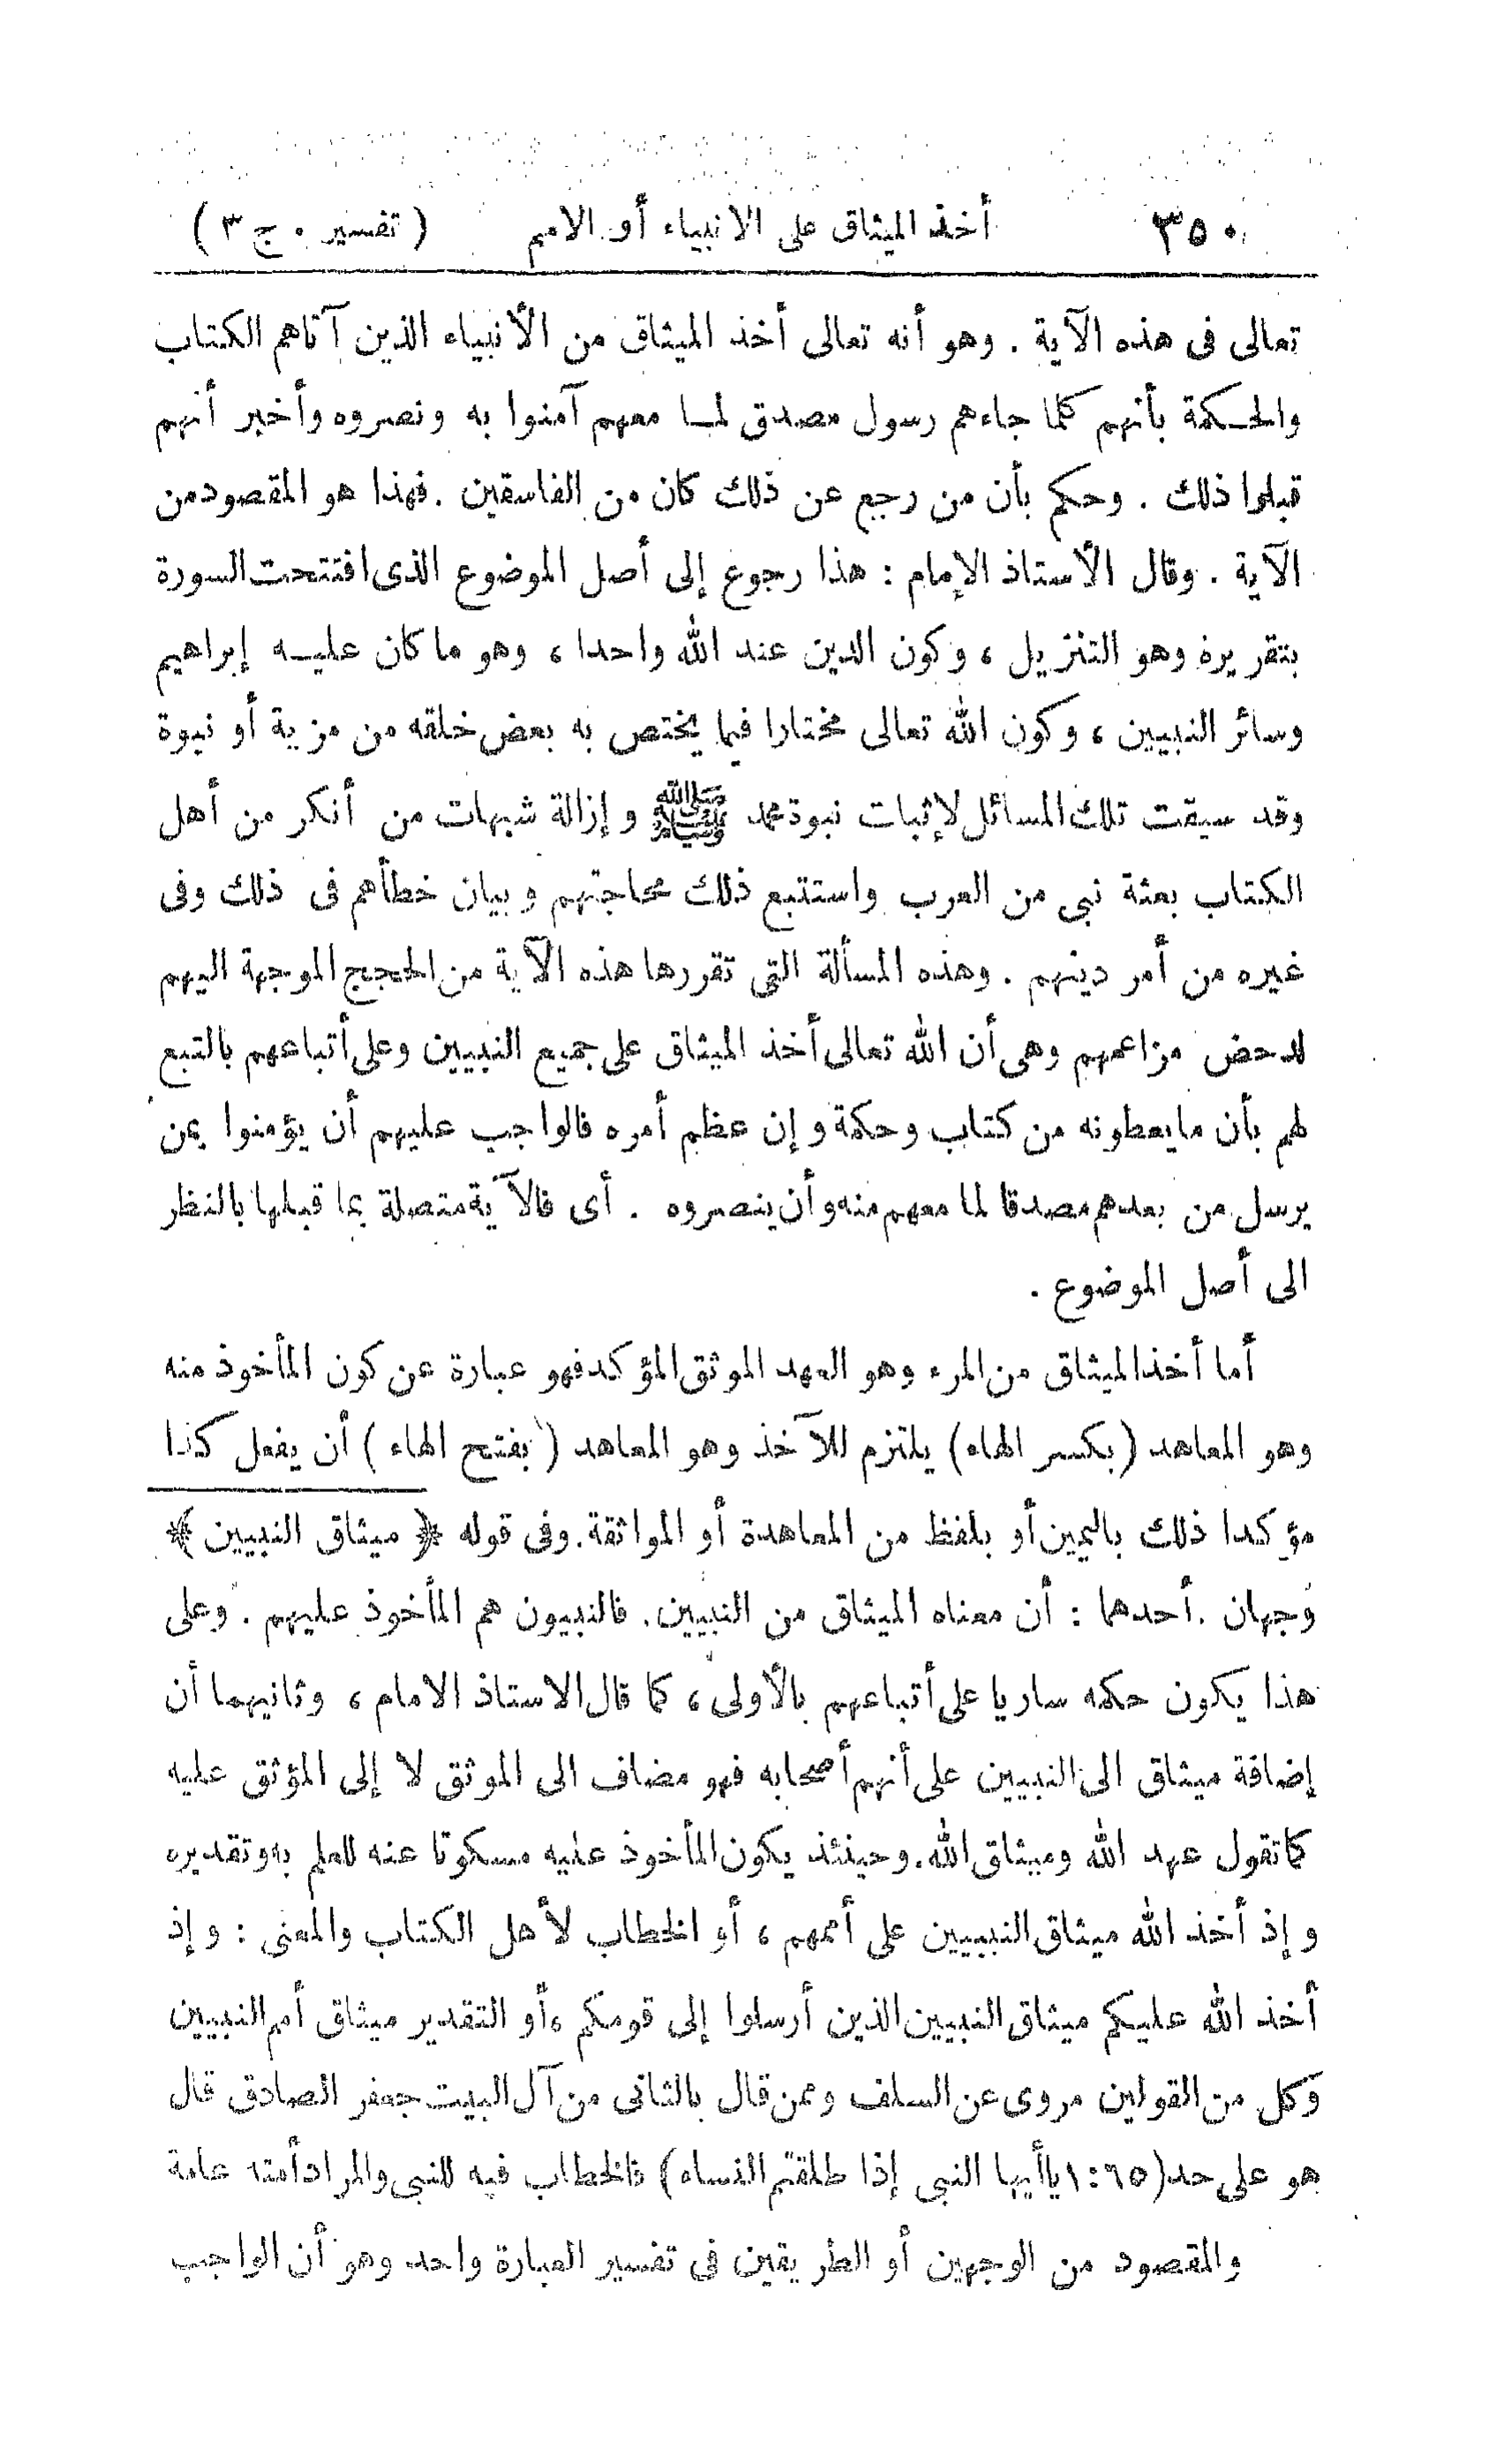 ٣٥٠ أخذ الميثاق على الانبياء أو الامم ( تفسير . ج ٣ )
تعالى فى هذه الآية . وهو أنه تعالى أخذ الميثاق من الأنبياء الذين آتاهم الكتاب
والحكمة بأنهم كلما جاءهم رسول مصدق لما معهم آمنوا به ونصروه وأخبر أنهم
قبلوا ذلك . وحكم بأن من رجع عن ذلك كان من الفاسقين . فهذا هو المقصود من
الآية . وقال الأستاذ الإمام : هذا رجوع إلى أصل الموضوع الذى افتتحت السورة
بتقريره وهو التنزيل ، وكون الدين عند الله واحدا ، وهو ما كان عليه إبراهيم
وسائر النبيين ، وكون الله تعالى مختارا فيما يختص به بعض خلقه من مزية أو نبوة
وقد سيقت تلك المسائل لإثبات نبوة محمد ﷺ وإزالة شبهات من أنكر من أهل
الكتاب بعثة نبى من العرب واستتبع ذلك محاجتهم وبيان خطأهم فى ذلك وفى
غيره من أمر دينهم . وهذه المسألة التى تقررها هذه الآية من الحجج الموجهة اليهم
لدحض مزاعمهم وهى أن الله تعالى أخذ الميثاق على جميع النبيين وعلى أتباعهم بالتبع
لهم بأن ما يعطونه من كتاب وحكمة وإن عظم أمره فالواجب عليهم أن يؤمنوا بمن
يرسل من بعدهم مصدقا لما معهم منه وأن ينصروه . أى فالآية متصلة بما قبلها بالنظر
الى أصل الموضوع .
أما أخذ الميثاق من المرء وهو العهد الموثق المؤكد فهو عبارة عن كون المأخوذ منه
وهو المعاهد (بكسر الهاء) يلتزم للآخذ وهو المعاهد ( بفتح الهاء ) أن يفعل كذا
مؤكدا ذلك باليمين أو بلفظ من المعاهدة أو المواثقة . وفى قوله ﴿ ميثاق النبيين ﴾
وجهان . أحدهما : أن معناه الميثاق من النبيين . فالنبيون هم المأخوذ عليهم . وعلى
هذا يكون حكمه ساريا على أتباعهم بالأولى ، كما قال الاستاذ الامام ، وثانيهما أن
إضافة ميثاق الى النبيين على أنهم أصحابه فهو مضاف الى الموثق لا إلى المؤثق عليه
كما تقول عهد الله وميثاق الله . وحينئذ يكون المأخوذ عليه مسكوتا عنه للعلم به وتقديره
وإذ أخذ الله ميثاق النبيين على أممهم ، أو الخطاب لأهل الكتاب والمعنى : وإذ
أخذ الله عليكم ميثاق النبيين الذين أرسلوا إلى قومكم ، أو التقدير ميثاق أمم النبيين
وكل من القولين مروى عن السلف وممن قال بالثانى من آل البيت جعفر الصادق قال
هو على حد (٦٥:١ ياأيها النبى إذا طلقتم النساء) فالخطاب فيه للنبى والمراد أمته عامة
والمقصود من الوجهين أو الطريقين فى تفسير العبارة واحد وهو أن الواجب